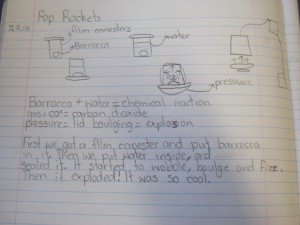 Pop Rockets
film canesters
Barrocca
water
pressure
Barrocca + water = chemical reaction
gas = co² = carbon dioxide
pressure = lid baulging = explosion
First we got a film canester and put barrocca
in it then we put water inside, and
sealed it. It started to wobble, baulge and fizz.
Then it exploded! It was so cool.